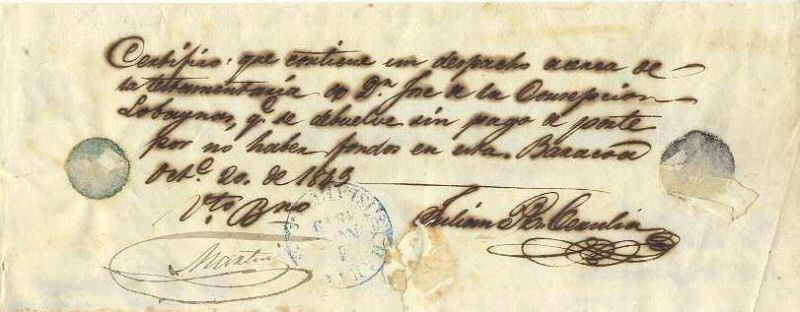 Certifico: que contiene un despacho acerca de
la testamentaria de Dn. José de la Concepcion
Lobaynas, q.e se debuelve sin pago de porte
por no haber fondos en esta. Baracoa
Oct.e 20. de 1873
Vto. Bno
Julián
Martin